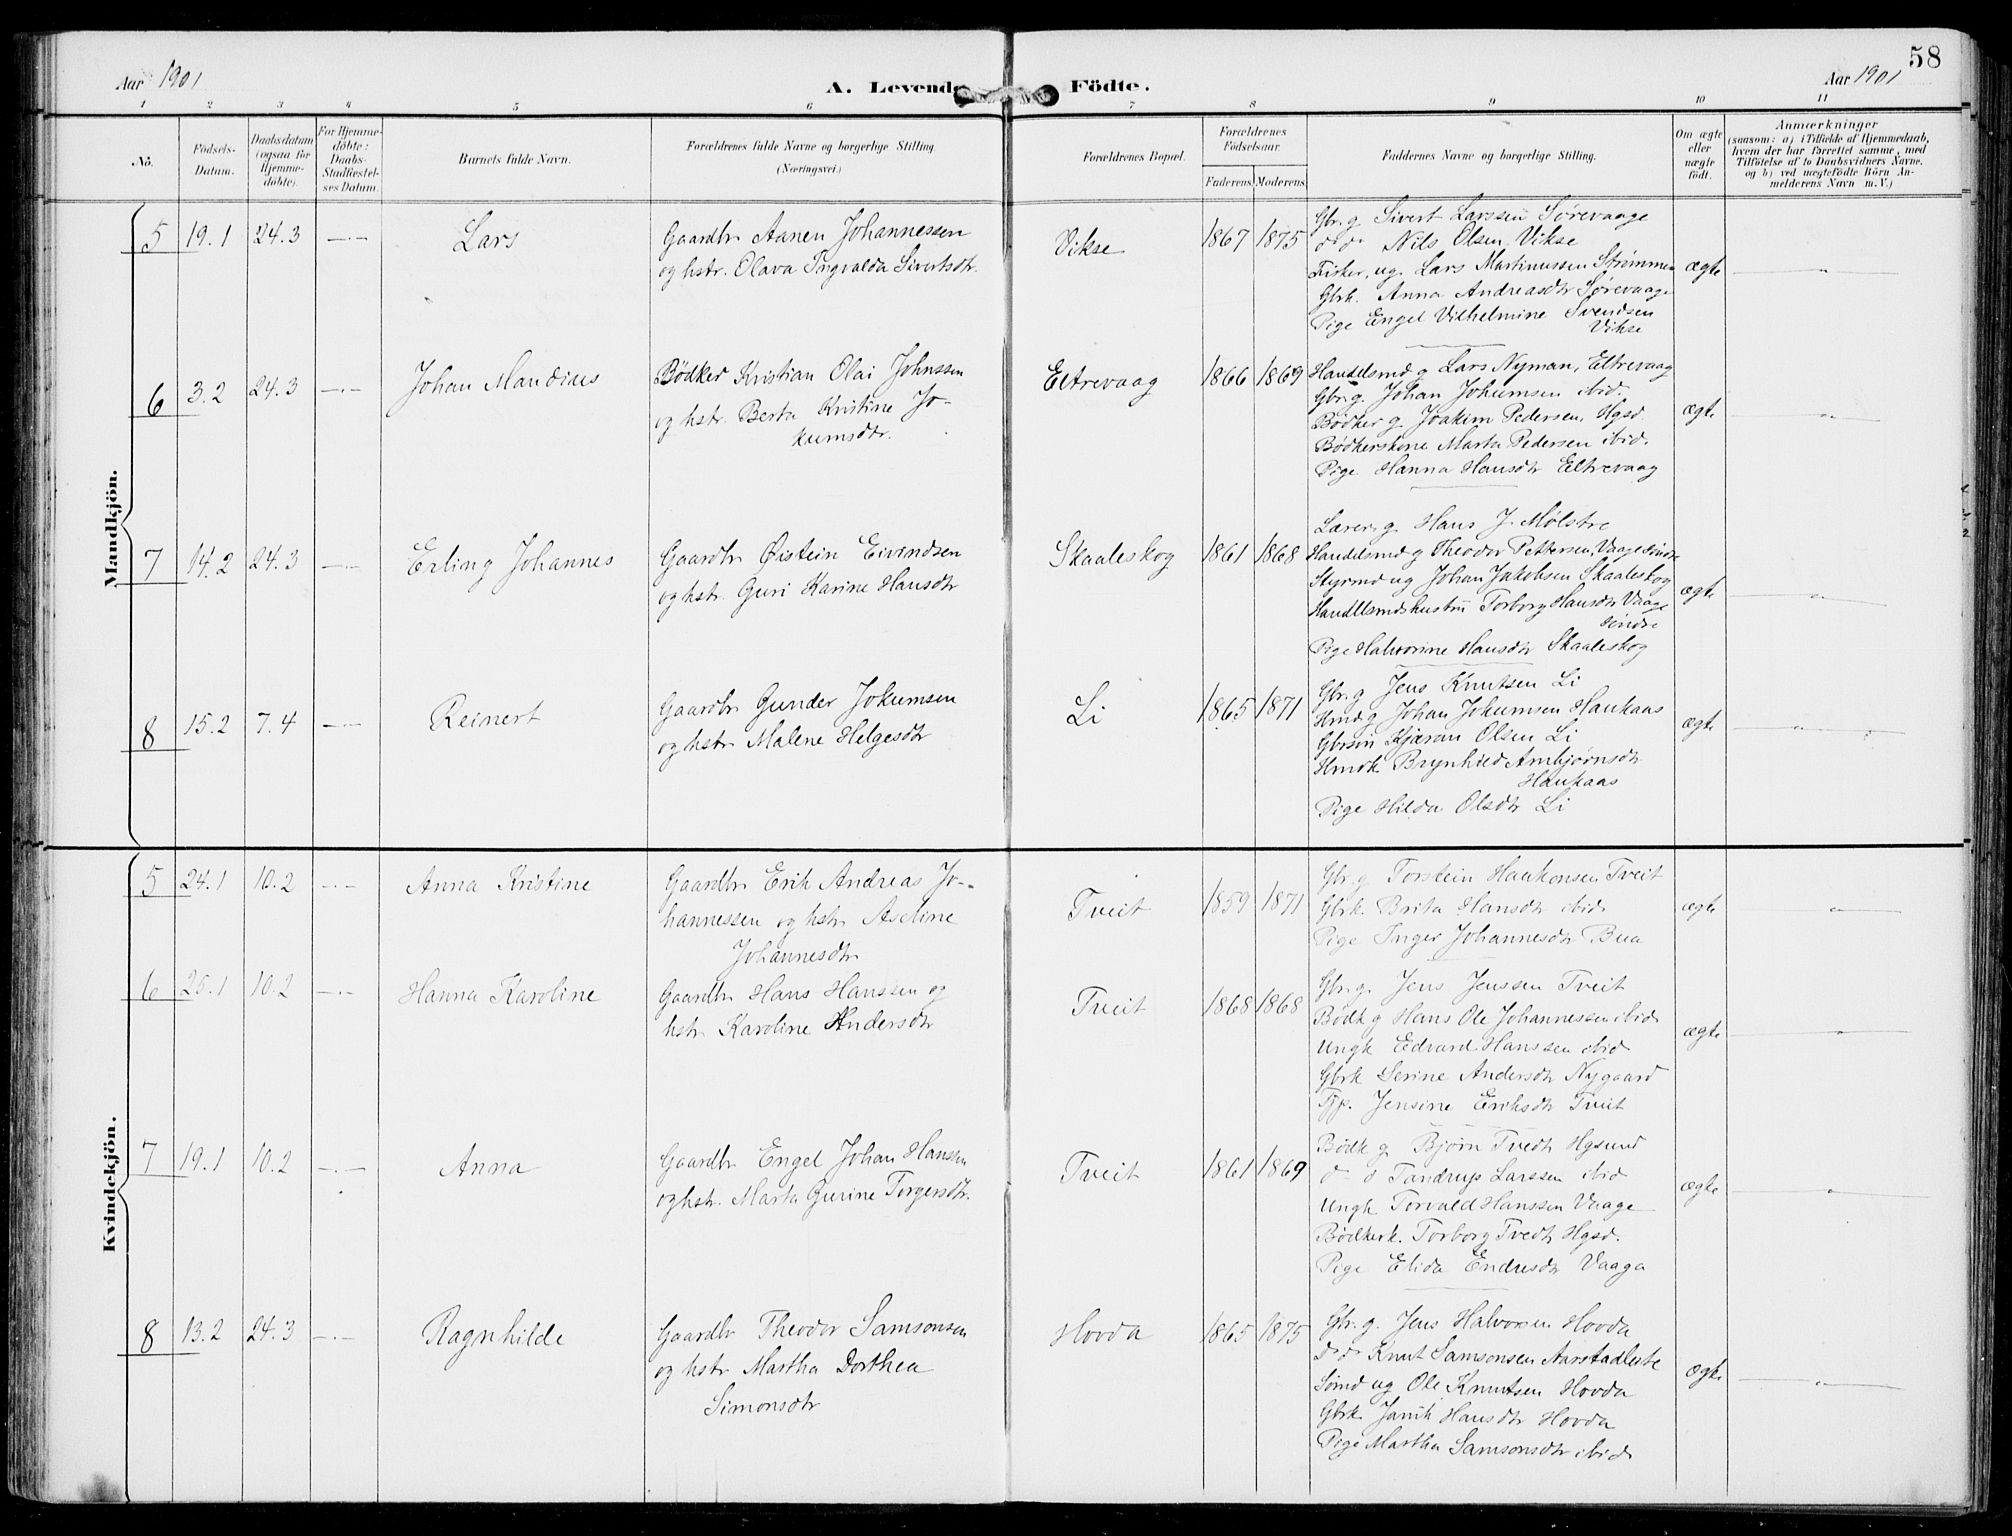 58
Aar 1901
A. Levende Födte.
Aar 1901
1 2 3 4 5 6 7 8 9 10 11
No.
Födsels-
Datum.
Daabsdatum
(ogsaa for
Hjemme-
döbte).
For Hjemme-
döbte:
Daabs-
Stadfæstel-
ses Datum.
Barnets fulde Navn.
Forældrenes fulde Navne og borgerlige Stilling.
(Næringsvei.)
Forældrenes Bopæl.
Forældrenes
Födselsaar.
Faderens. Moderens.
Faddernes Navne og borgerlige Stilling.
Om ægte
eller
uægte
födt.
Anmærkninger
(saasom: a) i Tilfælde af Hjemmedaab,
hvem der har forrettet samme, med
Tilföielse af to Daabsvidners Navne.
og b) ved uægtefödte Börn An-
melderens Navn m. V.)
Mandkjön.
5 19.1 24.3 —.— Lars
Gaardbr Aanen Johannessen
og hstr. Olava Ingvalda Sivertsdtr.
Vikse 1867 1875
Gbr. g. Sivert Larssen Sørevaage
do do Nils Olsen Vikse
Fisker, ug. Lars Martinussen Strømmen
Gbrk. Anna Andreasdtr Sørevaage
Pige Engel Vilhelmine Svendsen
Vikse
ægte — " —
6 3.2 24.3 —.— Johan Mandius
Bödker Kristian Olai Johnssen
og hstr. Berta Kristine Jo-
kumsdtr.
Eltrevaag 1866 1869
Handelsmd g Lars Nyman, Eltrevaag
Gbr. g. Johan Johumsen ibid.
Bødker g Joakim Pedersen, Hgsd.
Bødkerskone Marta Pedersen ibid.
Pige Hanna Hansdtr Eltrevaag
ægte — " —
7 14.2 24.3 —.— Erling Johannes
Gaardbr Øistein Eivindsen
og hstr. Guri Karine Hansdtr
Skaaleskog 1861 1868
Lærer g. Hans J. Mølstre
Handelsmd g Theodor Pettersen, Vaage Söndre
Styrmd ug Johan Jakobsen Skaaleskog
Handelsmdshustru Torborg Hansdtr Vaage
söndre
Pige Halvorine Hansdtr Skaaleskog
ægte — " —
8 15.2 7.4 —.— Reinert
Gaardbr Gunder Jokumsen
og hstr Malene Helgesdtr
Li 1865 1871
Gbr. g Jens Knutsen Li
Hmd g Johan Jokumsen Haukaas
Gbrsön Kjæran Olsen Li
Hmdk Brynhild Ambjørnsdtr
Haukaas
Pige Hilda Olsdtr Li
ægte — " —
Kvindekjön.
5 24.1 10.2 —.— Anna Kristine
Gaardbr Erik Andreas Jo-
hannessen og hstr Aseline
Johannesdtr
Tveit 1859 1871
Gbr. g Torstein Haakonsen Tveit
Gbrk. Brita Hansdtr ibid
Pige Inger Johannesdtr Bua
ægte — " —
6 25.1 10.2 —.— Hanna Karoline
Gaardbr Hans Hanssen og
hstr Karoline Andersdtr
Tveit 1868 1868
Gbr. g. Jens Jenssen Tveit
Bødk g Hans Ole Johannessen ibid
Ungk Edvard Hanssen ibid
Gbrk Serine Andersdtr Nygaard
Tjp. Jensine Eriksdtr Tveit
ægte — " —
7 19.1 10.2 —.— Anna
Gaardbr Engel Johan Hanssen
og hstr. Marta Gurine Torgersdtr.
Tveit 1861 1869
Bødk g Bjørn Tvedt Hgsund
d d Tandrup Larssen ibid
Ungk Torvald Hanssen Vaage
Bødkerk. Torborg Tvedt Hgsd.
Pige Elida Endresdtr Vaaga
ægte — " —
8 13.2 24.3 —.— Ragnhilde
Gaardbr Theodor Samsonsen
og hstr Martha Dorthea
Simonsdtr
Hovda 1865 1875
Gbr. g. Jens Halvorsen Hovda
do do Knut Samsonsen Aarstadleite
Sømd ug Ole Knutsen Hovda
Gbrk Hansdtr Hovda
Pige Martha Samsonsdtr ibid
ægte — " —